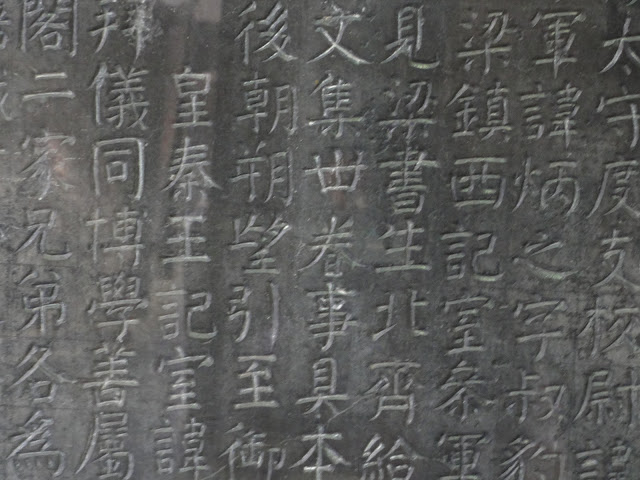 太守度支校尉諱
軍諱炳之字叔豹
梁鎮西記室叅軍
見梁書生北齊給
文集丗卷事具本
後朝朔望引至御
皇秦王記室諱
拜儀同博學善屬
閣二家兄弟各為